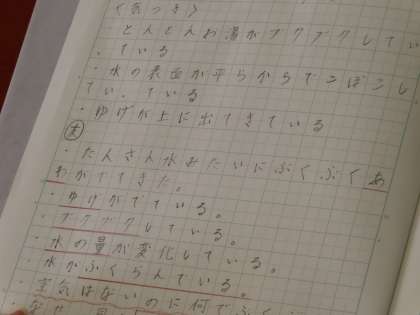 〈気づき〉
どんどんお湯がブクブクしてい
ている
・水の表面が平らからでこぼこし
てい。ている
・ゆげが上に出てきている
友
・たんさん水みたいにぶくぶくあ
わがでてきた。
・ゆげがでている。
・ブクブクしている。
・水の量が変化している。
・水がふくらんでいる。
・空気はないのに何でぶく